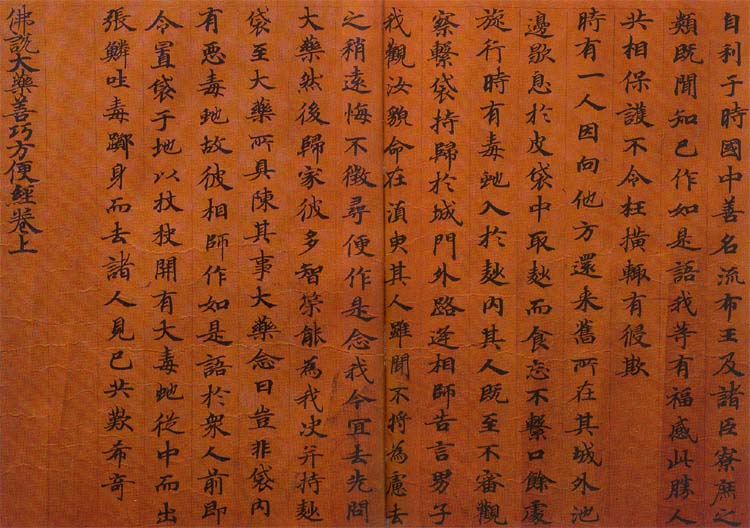 自利于時國中善名流布王及諸臣寮庶之
類既聞知已作如是語我等有福感此勝人
共相保護不令枉橫輒有侵欺
時有一人因向他方還來舊所在其城外池
邊歇息於皮袋中取麨而食忘不繫口餘處
旋行時有毒虵入於麨內其人既至不審觀
察繫袋持歸於城門外路逢相師告言男子
我觀汝貌命在湏臾其人雖聞不將為慮去
之稍遠悔不徵尋便作是念我今宜去先問
大藥然後歸家彼多智筭能為我決并持麨
袋至大藥所具陳其事大藥念曰豈非袋內
有惡毒虵故彼相師作如是語於衆人前即
令置袋于地以杖開有大毒虵從中而出
張鱗吐毒躑身而去諸人見已共歎希奇
佛說大藥善巧方便經卷上